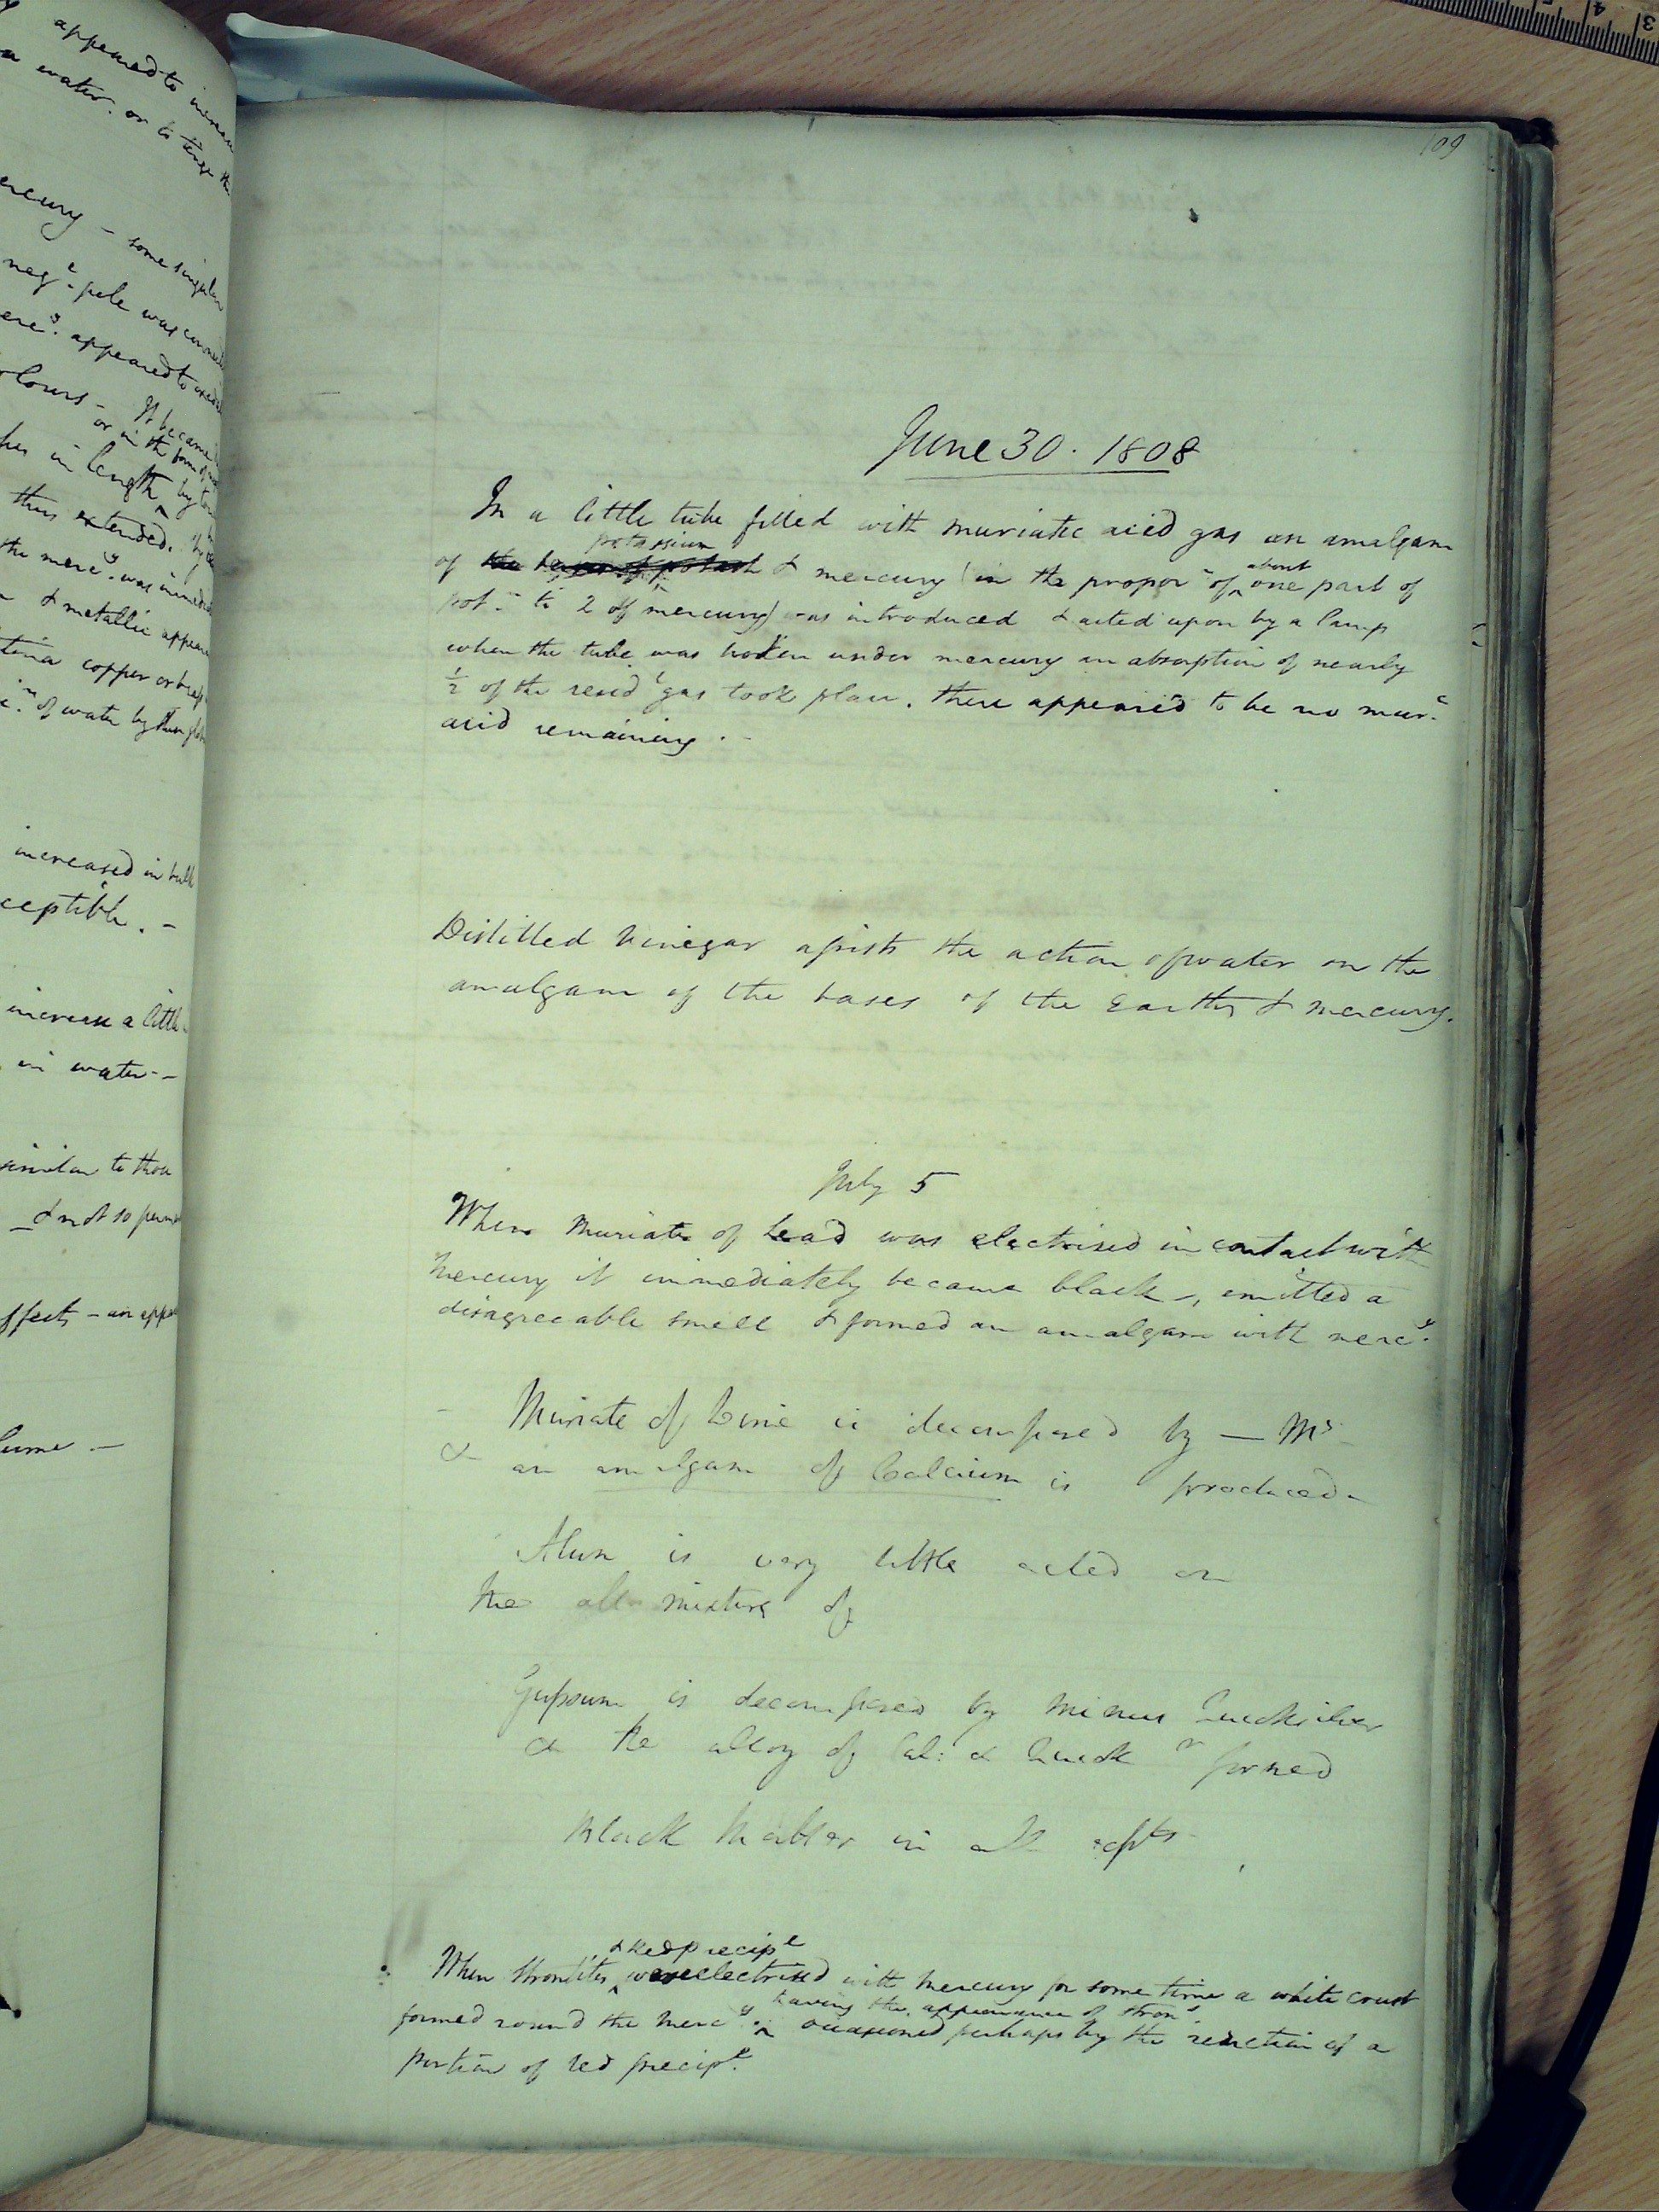 appeared to increase
a water. or to tinge the
ercury - some singular
neg.e pole was connec
erc.y appeared to
olours - It became
or in the form of
hes in length by
thus extended.
the merc.y was immedia
& metallic appear
tina copper or
of water by
increased in bulk
ceptible. -
increase a little
in water --
similar to those
_& not so perm
ffects - an appe
lume -
109
June 30. 1808
In a little tube filled with muriatic acid gas an amalgam
potassium
of the bases of potash & mercury (in the propor.n of about one part of
pot.m to 2 of mercury) was introduced & acted upon by a lamp
when the tube was broken under mercury an absorption of nearly
½ of the resid.l gas took place. there appeared to be no mur.c
acid remaining. -
Distilled Vinegar assists the action of water on the
amalgam of the bases of the Earths & mercury.
July 5
When Muriate of Lead was electrised in contact with
Mercury it immediately became black -, emitted a
disagreeable smell & formed an amalgam with merc.y
- Muriate of Lime is decomposed by — Ms
& an amalgam of Calcium is produced -
Alum is very little acted on
the mixture of
Gypsum is decomposed by minus Quicksilver
& the alloy of Cal: & Quick r formed
Black Matter in all expts
& Red precip.e
When Strontites were electrised with Mercury for some time a white crust
having the appearance of stron.s
formed round the Merc.y occasioned perhaps by the reduction of a
portion of red precip.e
3 4 5